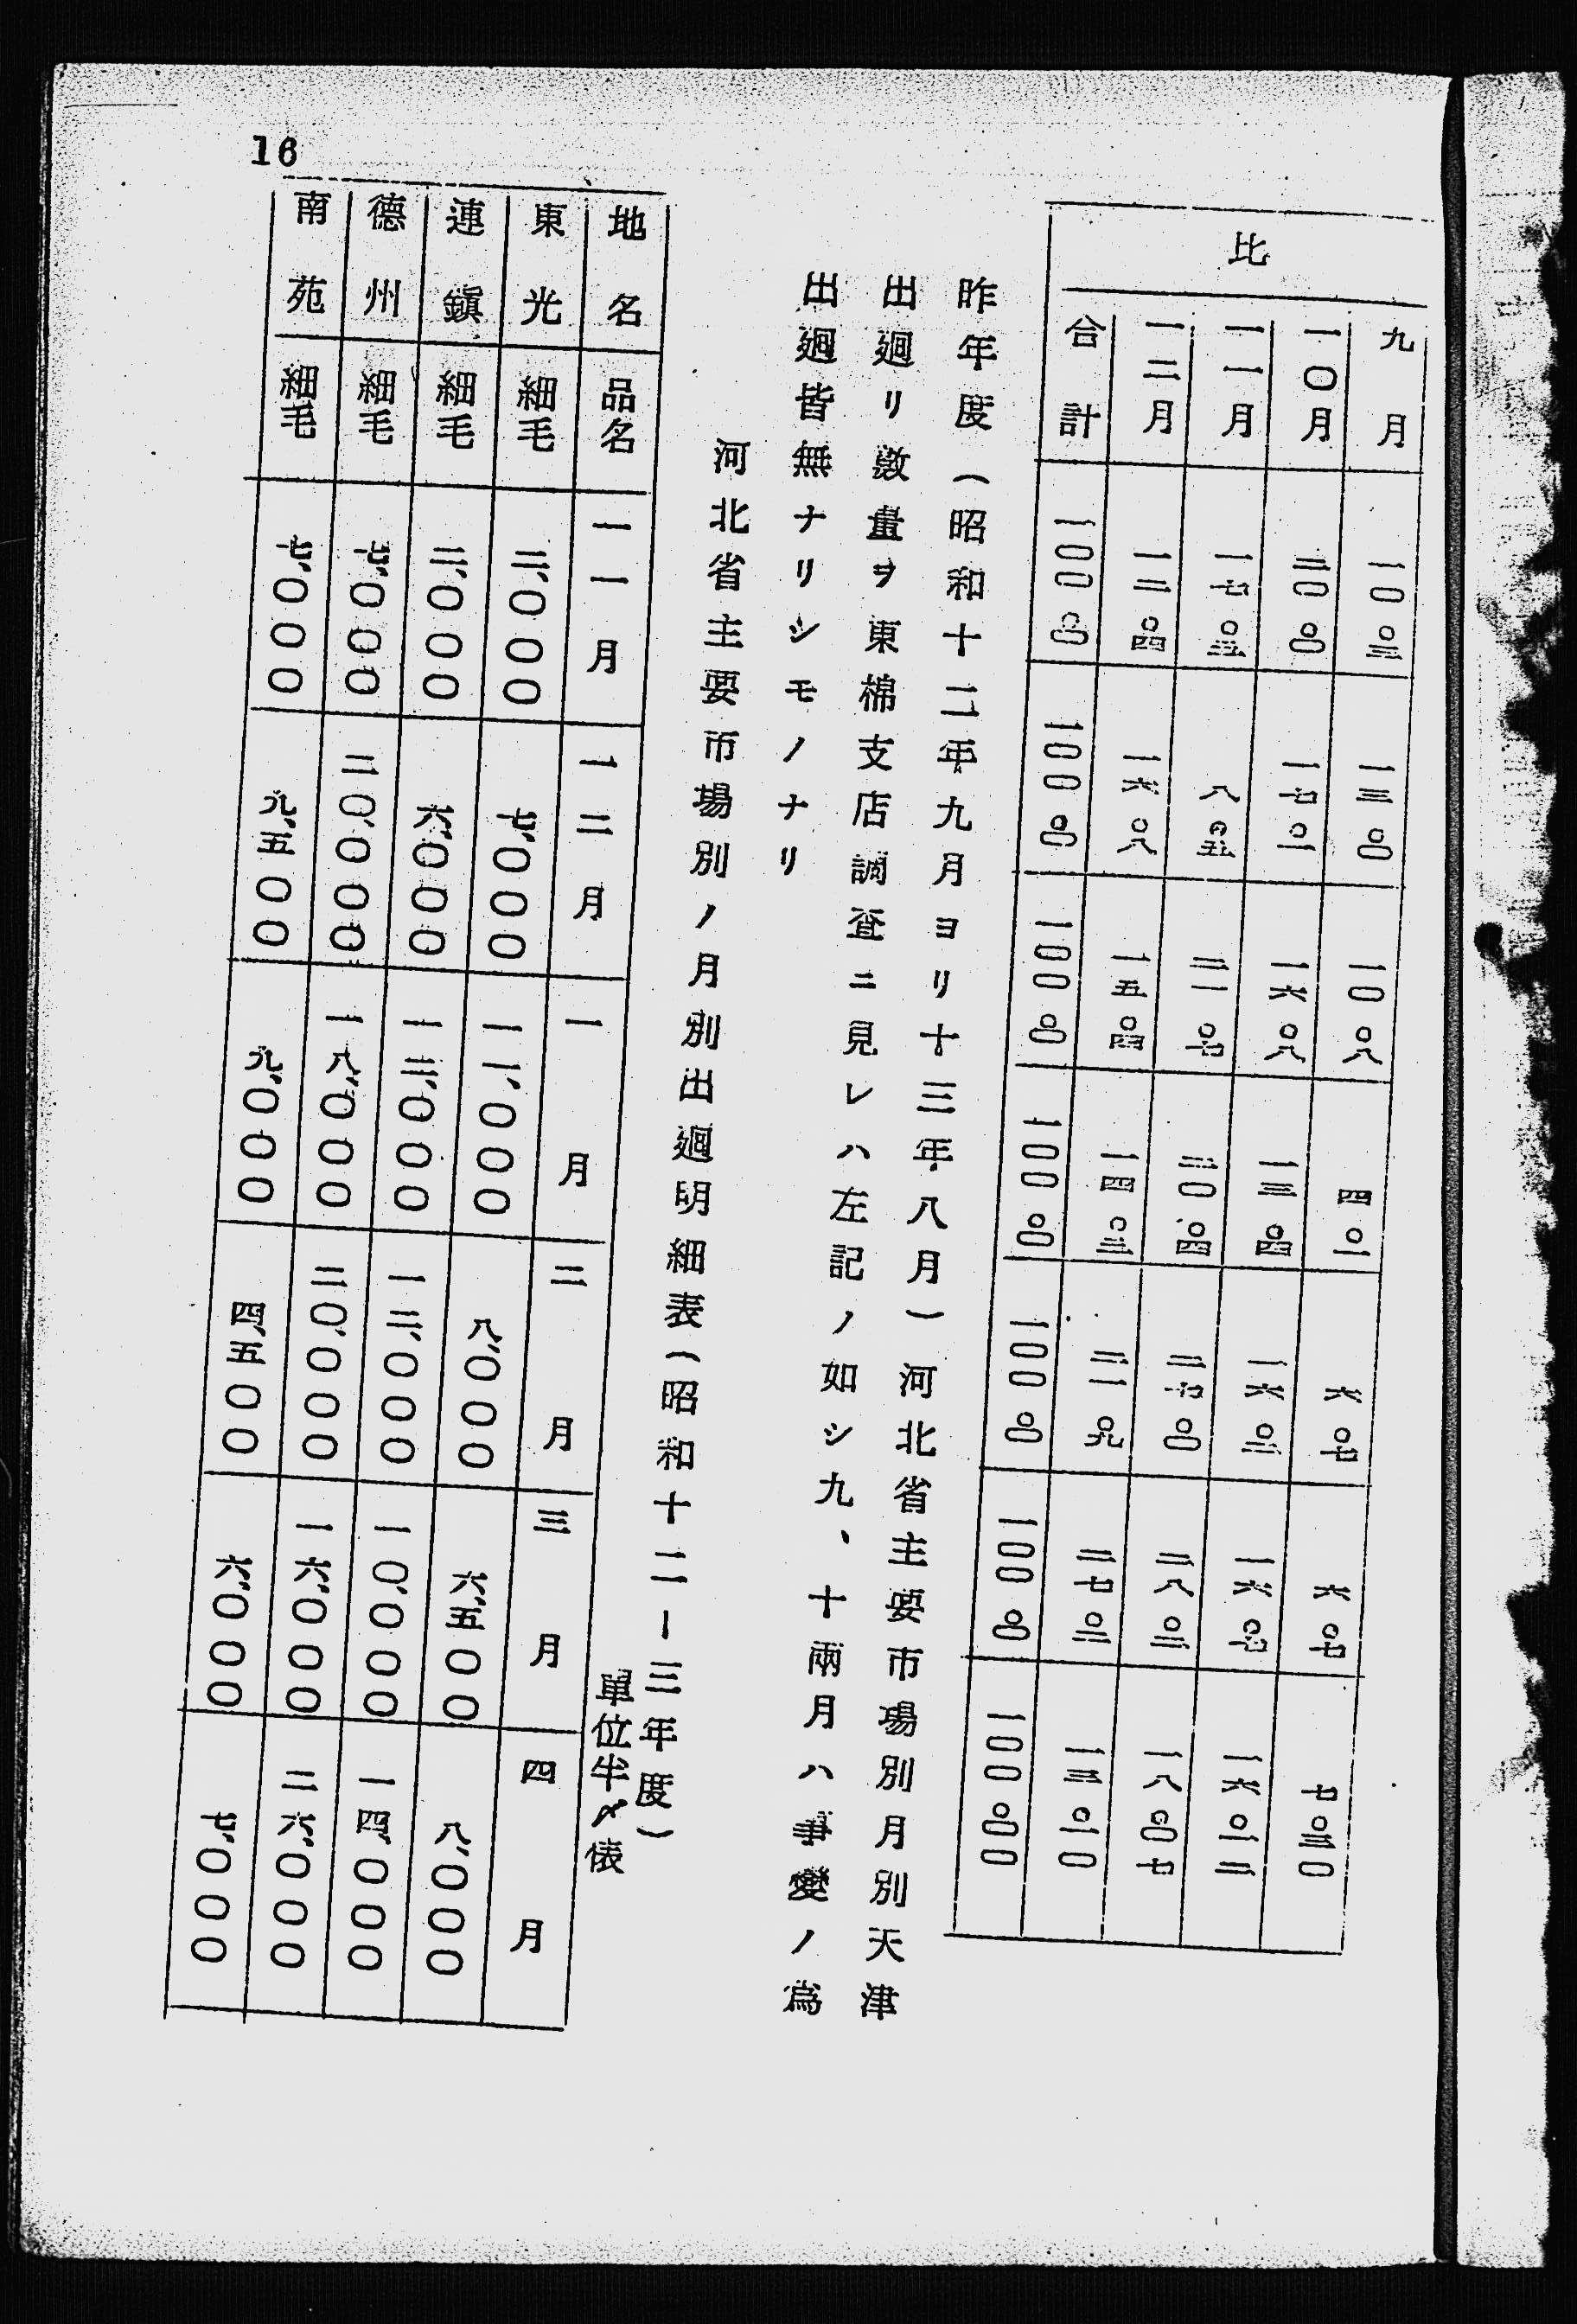 比
九月 一〇。三 一三。〇 一〇。八 四。一 六。七 六。七 七。三〇
一〇月 二〇。〇 一七。一 一六。八 一三。四 一六。三 一六。七 一六。一二
一一月 一七。三 八。五 二一。七 三〇。四 二七。〇 二八。三 一八。〇七
一二月 一二。四 一六。八 一五。四 一四。三 二一。九 二七。三 一三。一〇
合計 一〇〇。〇 一〇〇。〇 一〇〇。〇 一〇〇。〇 一〇〇。〇 一〇〇。〇 一〇〇。〇〇
昨年度(昭和十二年九月ヨリ十三年八月)河北省主要市場別月別天津
出廻リ數量ヲ東棉支店調査ニ見レハ左記ノ如シ九、十兩月ハ事變ノ爲
出廻皆無ナリシモノナリ
河北省主要市場別ノ月別出廻明細表(昭和十二ー三年度)
單位半〆俵
地名 品名 一一月 一二月 一月 二月 三月 四月
東光 細毛 三、〇〇〇 七、〇〇〇 一一、〇〇〇 八、〇〇〇 六、五〇〇 八、〇〇〇
連鎭 細毛 三、〇〇〇 六、〇〇〇 一三、〇〇〇 一三、〇〇〇 一〇、〇〇〇 一四、〇〇〇
德州 細毛 七、〇〇〇 二〇、〇〇〇 一八、〇〇〇 二〇、〇〇〇 一六、〇〇〇 二六、〇〇〇
南苑 細毛 七、〇〇〇 九、五〇〇 九、〇〇〇 四、五〇〇 六、〇〇〇 七、〇〇〇
16